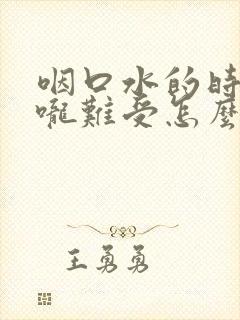 咽口水的時
嚨難受怎麼
王勇勇